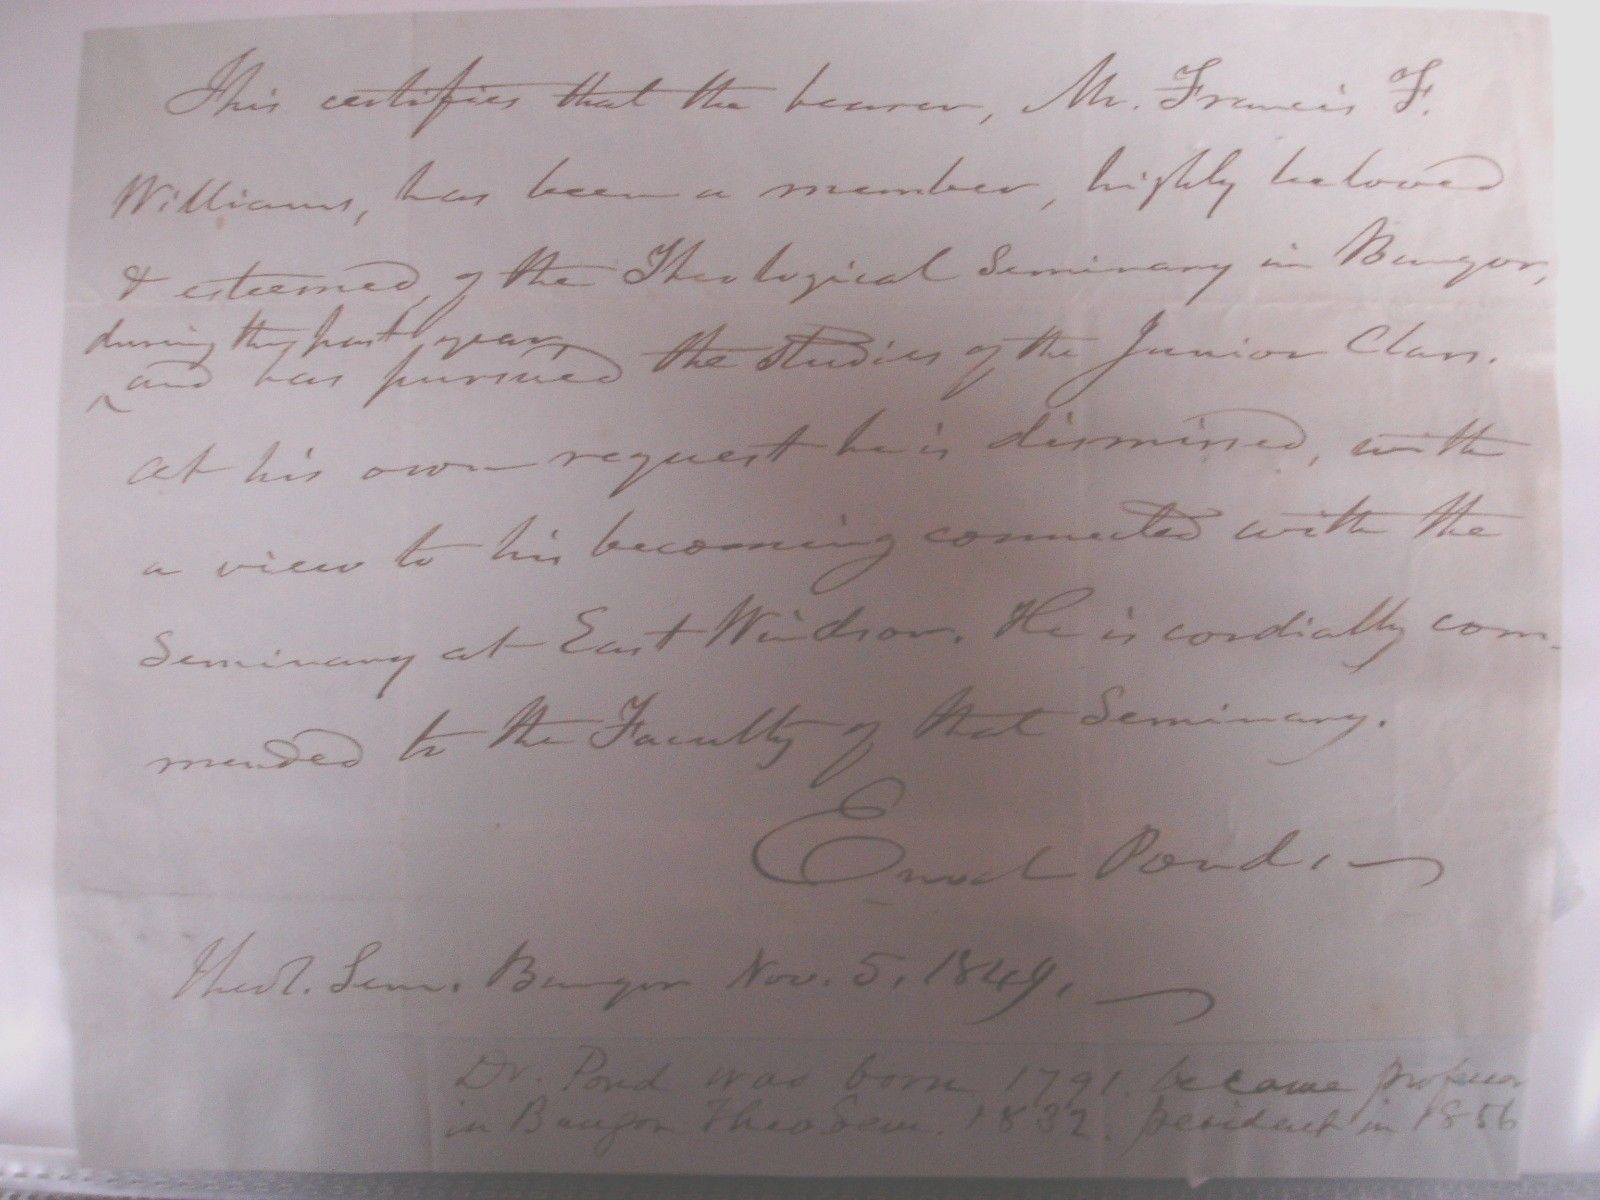 This certifies that the bearer, Mr. Francis F.
Williams, has been a member, highly beloved
& esteemed, of the Theological Seminary in Bangor,
during the past year,
^ and has pursued the studies of the Junior Class.
At his own request he is dismissed, with
a view to his becoming connected with the
Seminary at East Windsor. He is cordially com-
mended to the Faculty of that Seminary.
Enoch Pond,
Theol. Sem. Bangor Nov. 5, 1849.
Dr. Pond was born 1791. became professor
in Bangor Theo Sem. 1832. president in 1856